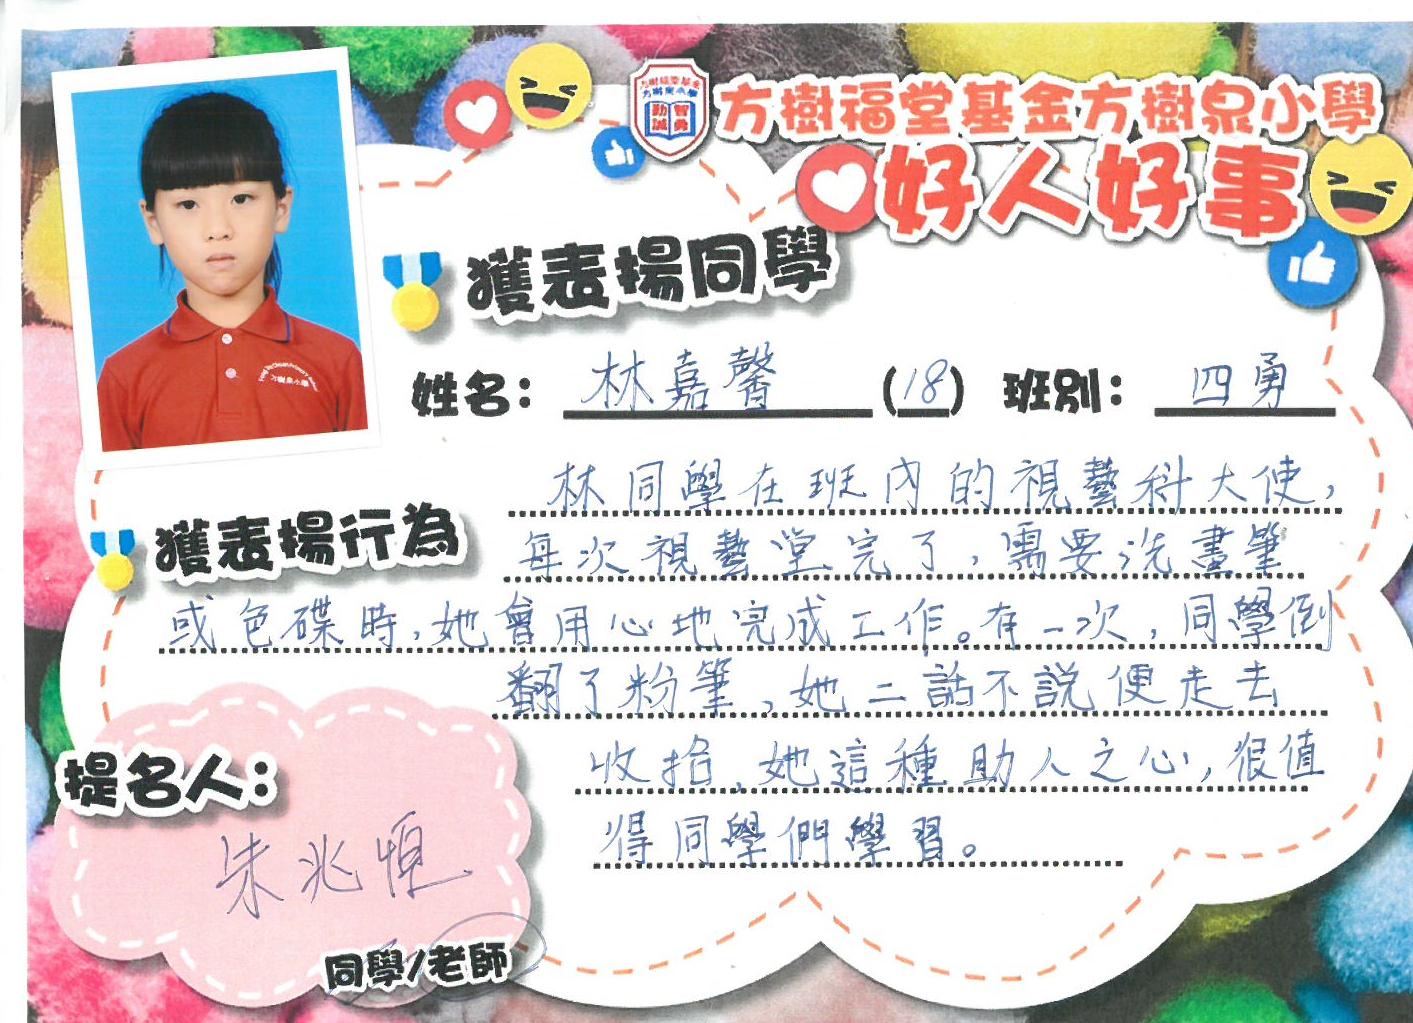 方樹福堂基金方樹泉小學
好人好事
獲表揚同學
姓名： 林嘉馨 (18) 班別： 四勇
獲表揚行為
林同學在班內的視藝科大使，
每次視藝堂完了，需要洗畫筆
或色碟時，她會用心地完成工作。有一次，同學倒
翻了粉筆，她二話不說便走去
收拾，她這種助人之心，很值
得同學們學習。
提名人：
朱兆恒
同學/老師
方樹福堂基金
方樹泉小學
勤智
誠勇
方樹泉小學